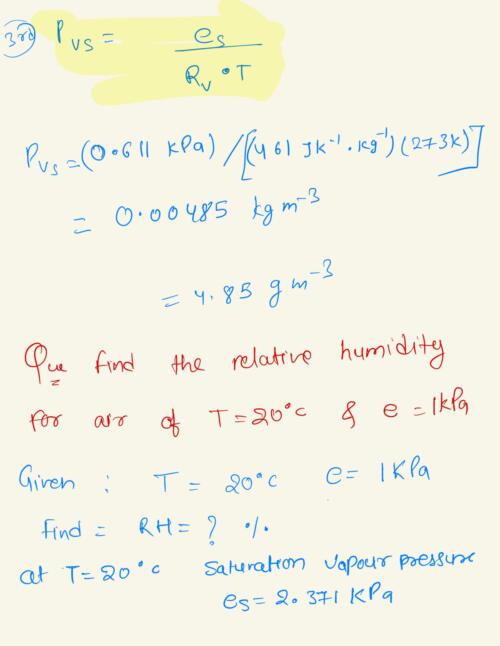 3rd ρvs = es / Rv • T
ρvs = (0.611 kPa) / [(461 JK⁻¹.kg⁻¹) (273K)]
= 0.00485 kg m⁻³
= 4.85 g m⁻³
Que find the relative humidity
for air of T = 20°c & e = 1kPa
Given : T = 20°c e = 1KPa
find = RH = ? %.
at T = 20°c saturation vapour pressure
es = 2.371 KPa